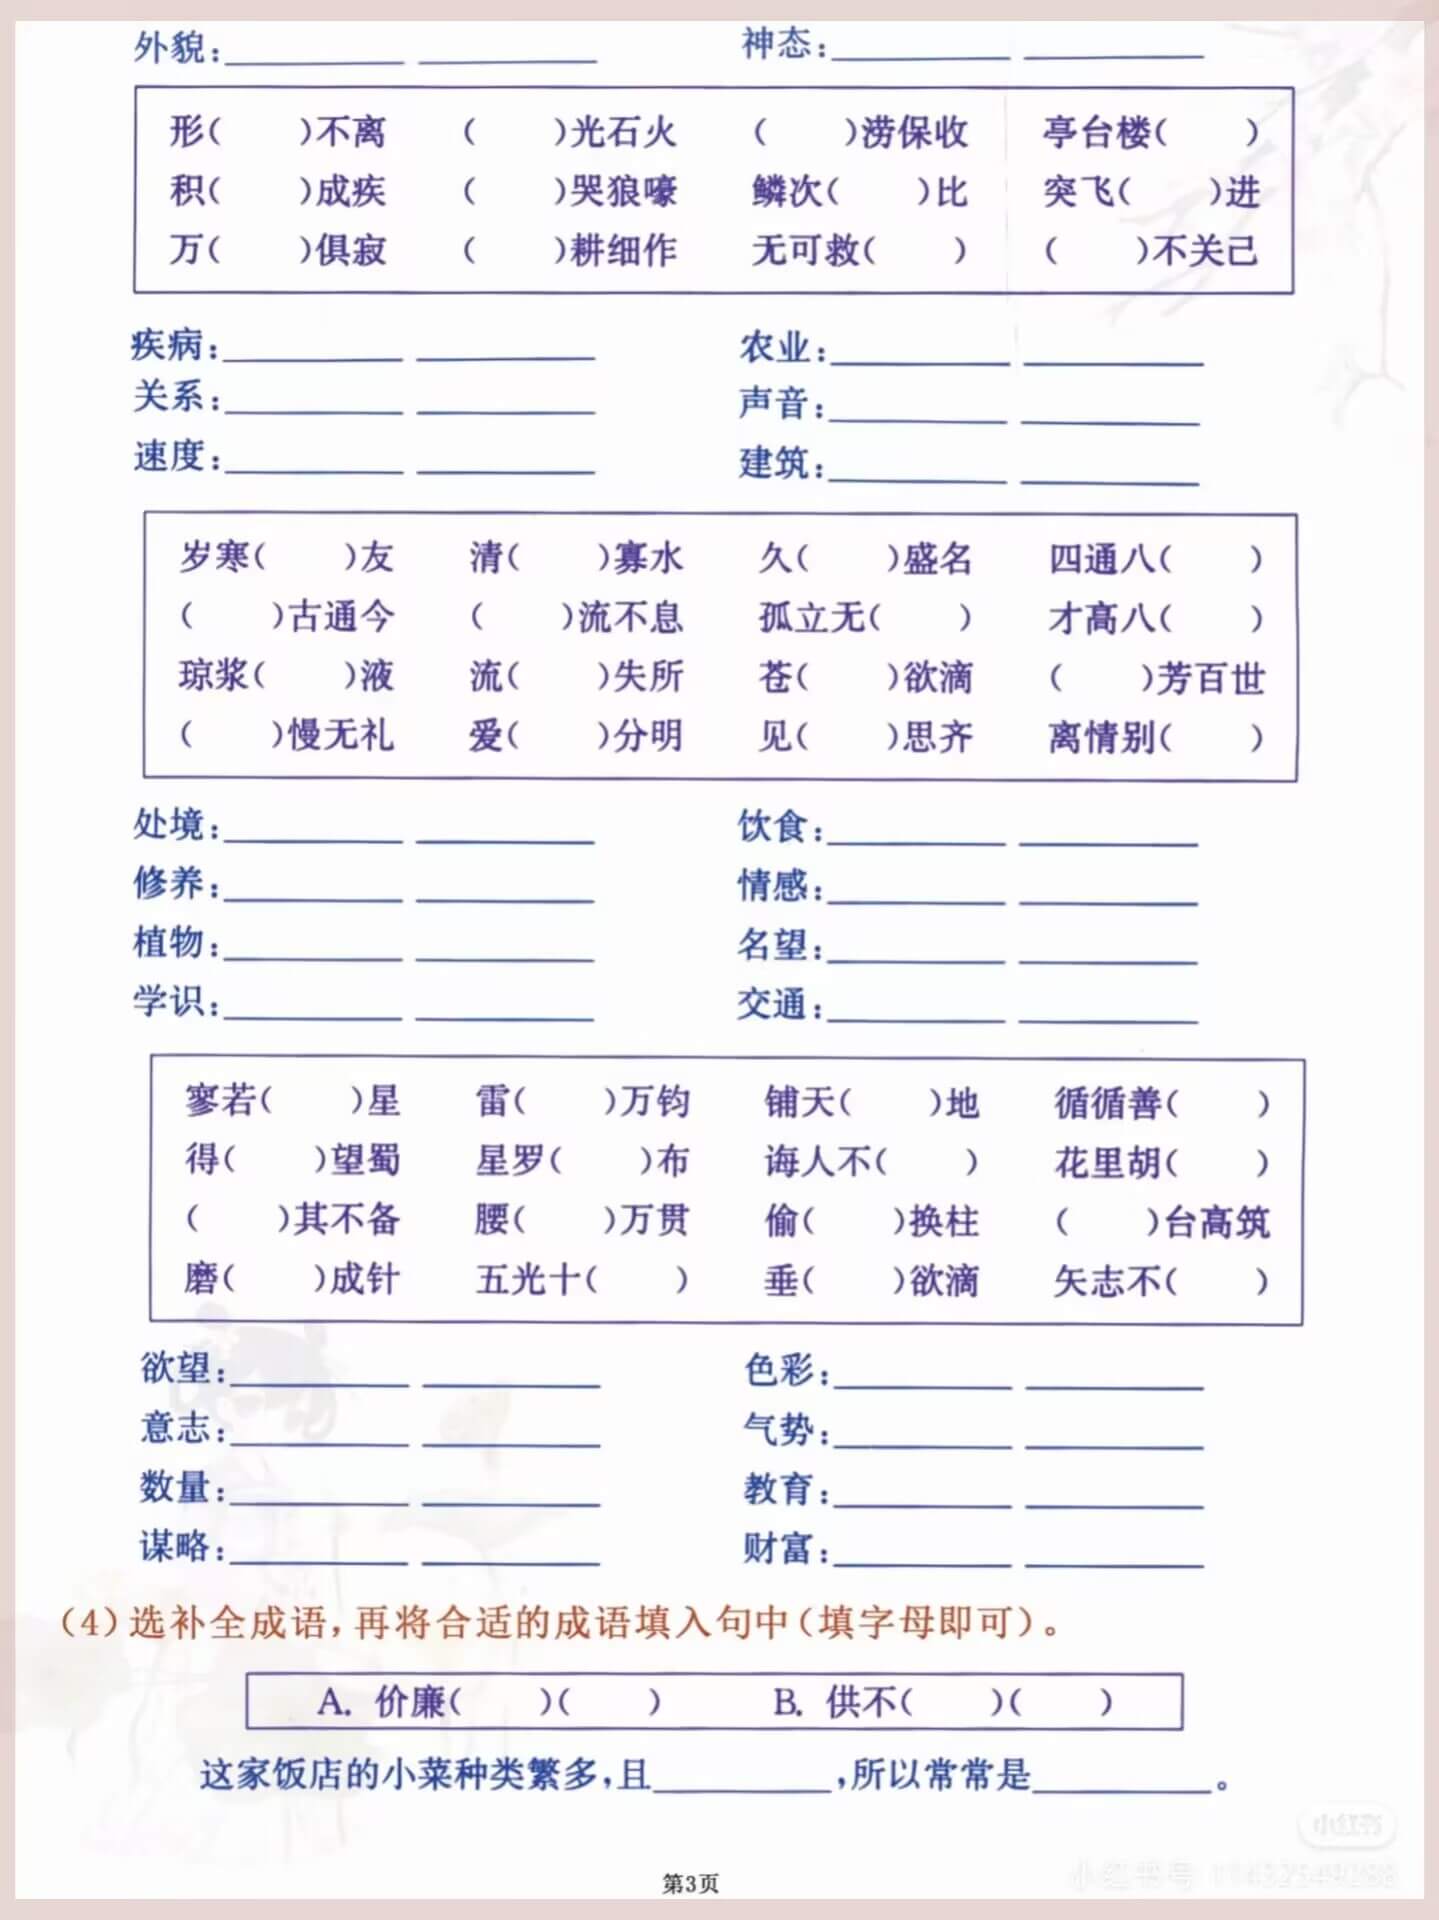 外貌：__________ __________ 神态：__________ __________
形(　　)不离 (　　)光石火 (　　)涝保收 亭台楼(　　)
积(　　)成疾 (　　)哭狼嚎 鳞次(　　)比 突飞(　　)进
万(　　)俱寂 (　　)耕细作 无可救(　　) (　　)不关己
疾病：__________ __________ 农业：__________ __________
关系：__________ __________ 声音：__________ __________
速度：__________ __________ 建筑：__________ __________
岁寒(　　)友 清(　　)寡水 久(　　)盛名 四通八(　　)
(　　)古通今 (　　)流不息 孤立无(　　) 才高八(　　)
琼浆(　　)液 流(　　)失所 苍(　　)欲滴 (　　)芳百世
(　　)慢无礼 爱(　　)分明 见(　　)思齐 离情别(　　)
处境：__________ __________ 饮食：__________ __________
修养：__________ __________ 情感：__________ __________
植物：__________ __________ 名望：__________ __________
学识：__________ __________ 交通：__________ __________
寥若(　　)星 雷(　　)万钧 铺天(　　)地 循循善(　　)
得(　　)望蜀 星罗(　　)布 诲人不(　　) 花里胡(　　)
(　　)其不备 腰(　　)万贯 偷(　　)换柱 (　　)台高筑
磨(　　)成针 五光十(　　) 垂(　　)欲滴 矢志不(　　)
欲望：__________ __________ 色彩：__________ __________
意志：__________ __________ 气势：__________ __________
数量：__________ __________ 教育：__________ __________
谋略：__________ __________ 财富：__________ __________
(4)选补全成语，再将合适的成语填入句中(填字母即可)。
A. 价廉(　　)(　　) B. 供不(　　)(　　)
这家饭店的小菜种类繁多，且__________，所以常常是__________。
小红书
第3页